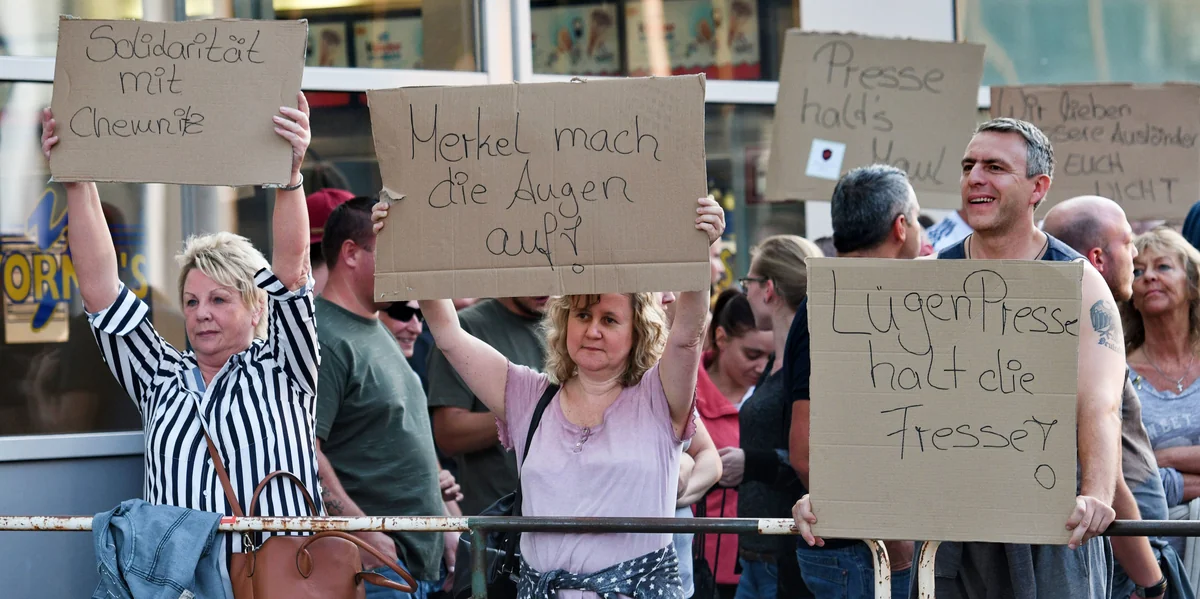 Solidarität
mit
Chemnitz
Merkel mach
die Augen
auf!
Presse
halt's
Maul
Wir lieben
unsere Ausländer
EUCH
NICHT
LügenPresse
halt die
Fresse!